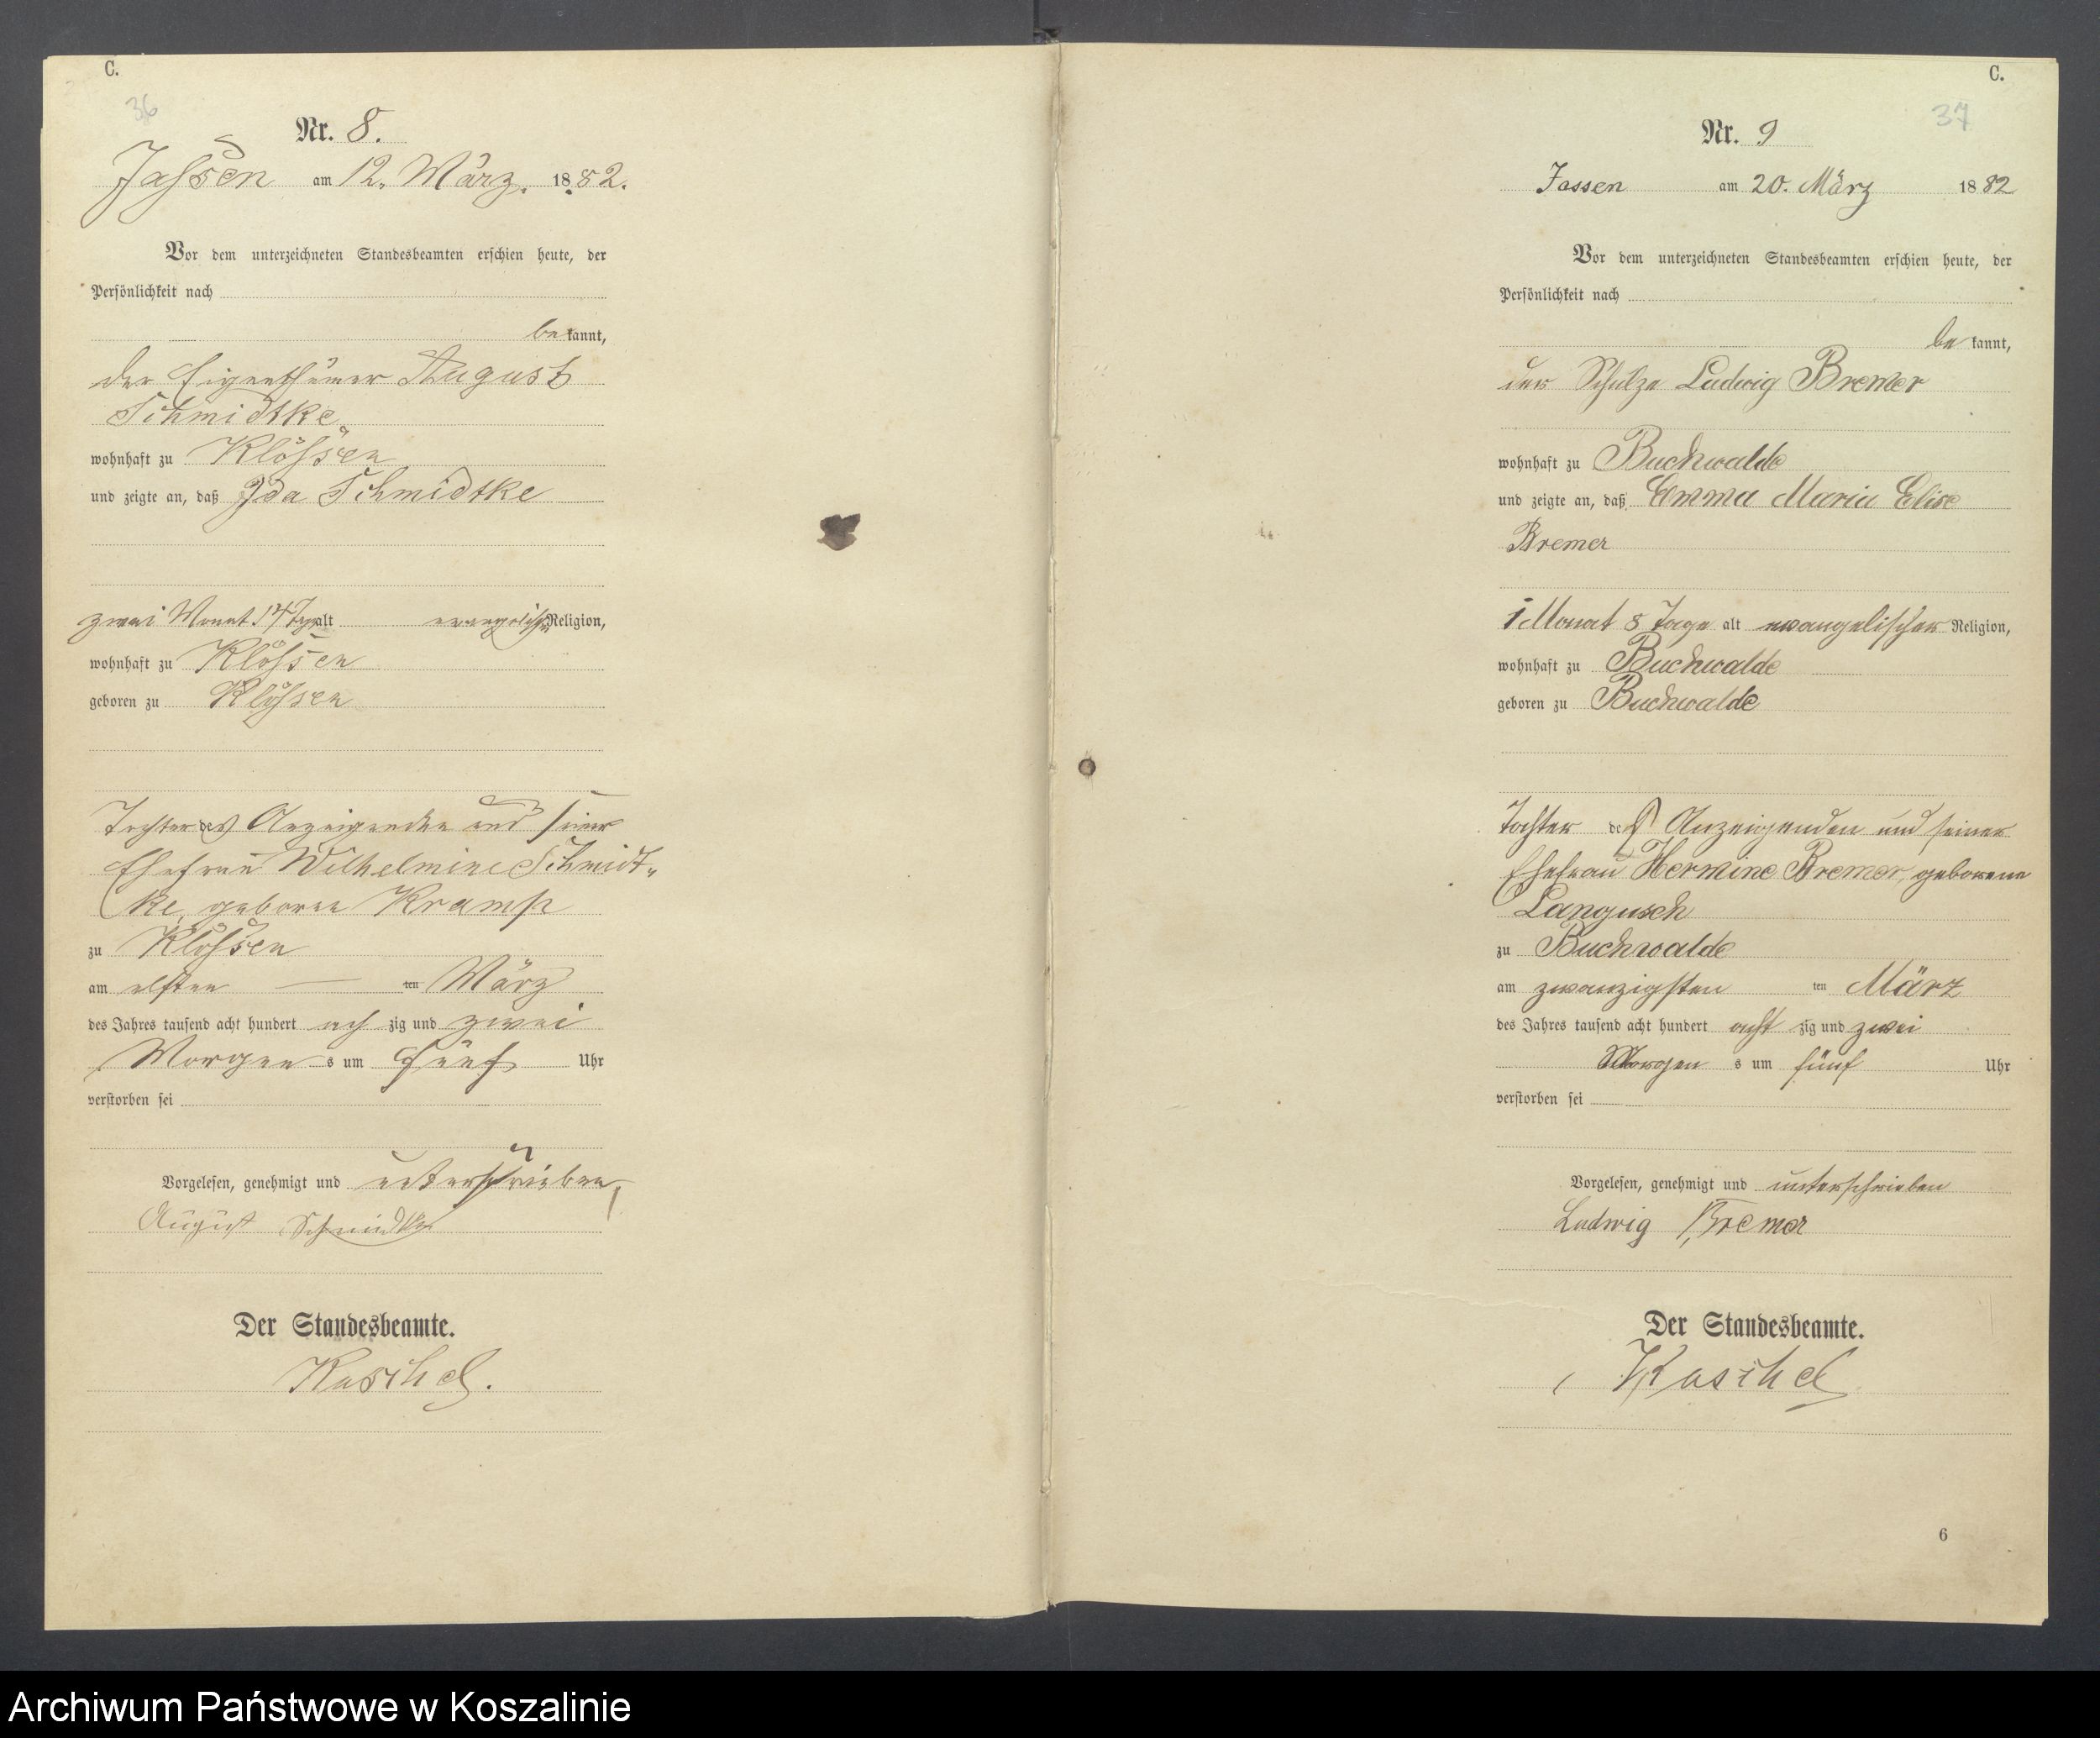 C.
36
Nr. 8.
Jassen am 12. März. 1882.
Vor dem unterzeichneten Standesbeamten erschien heute, der
Persönlichkeit nach
bekannt,
der Eigenthümer August
Schmidtke
wohnhaft zu Klössen
und zeigte an, daß Ida Schmidtke
zwei Monat 14 Tage alt evangelischer Religion,
wohnhaft zu Klössen
geboren zu Klössen
Tochter des Anzeigenden und seiner
Ehefrau Wilhelmine Schmidt-
ke, geborne Kramp
zu Klössen
am elften — ten März
des Jahres tausend acht hundert achzig und zwei
Morgens um fünf Uhr
verstorben sei
Vorgelesen, genehmigt und unterschrieben
August Schmidtke
Der Standesbeamte.
Kaschel.
C.
37
Nr. 9
Jassen am 20. März 1882
Vor dem unterzeichneten Standesbeamten erschien heute, der
Persönlichkeit nach
bekannt,
der Schulze Ludwig Bremer
wohnhaft zu Buchwalde
und zeigte an, daß Emma Maria Elise
Bremer
1 Monat 8 Tage alt evangelischer Religion,
wohnhaft zu Buchwalde
geboren zu Buchwalde
Tochter des Anzeigenden und seiner
Ehefrau Hermine Bremer, geborene
Langusch
zu Buchwalde
am zwanzigsten ten März
des Jahres tausend acht hundert achtzig und zwei
Morgens um fünf Uhr
verstorben sei
Vorgelesen, genehmigt und unterschrieben
Ludwig Bremer
Der Standesbeamte.
Kaschel
6
Archiwum Państwowe w Koszalinie